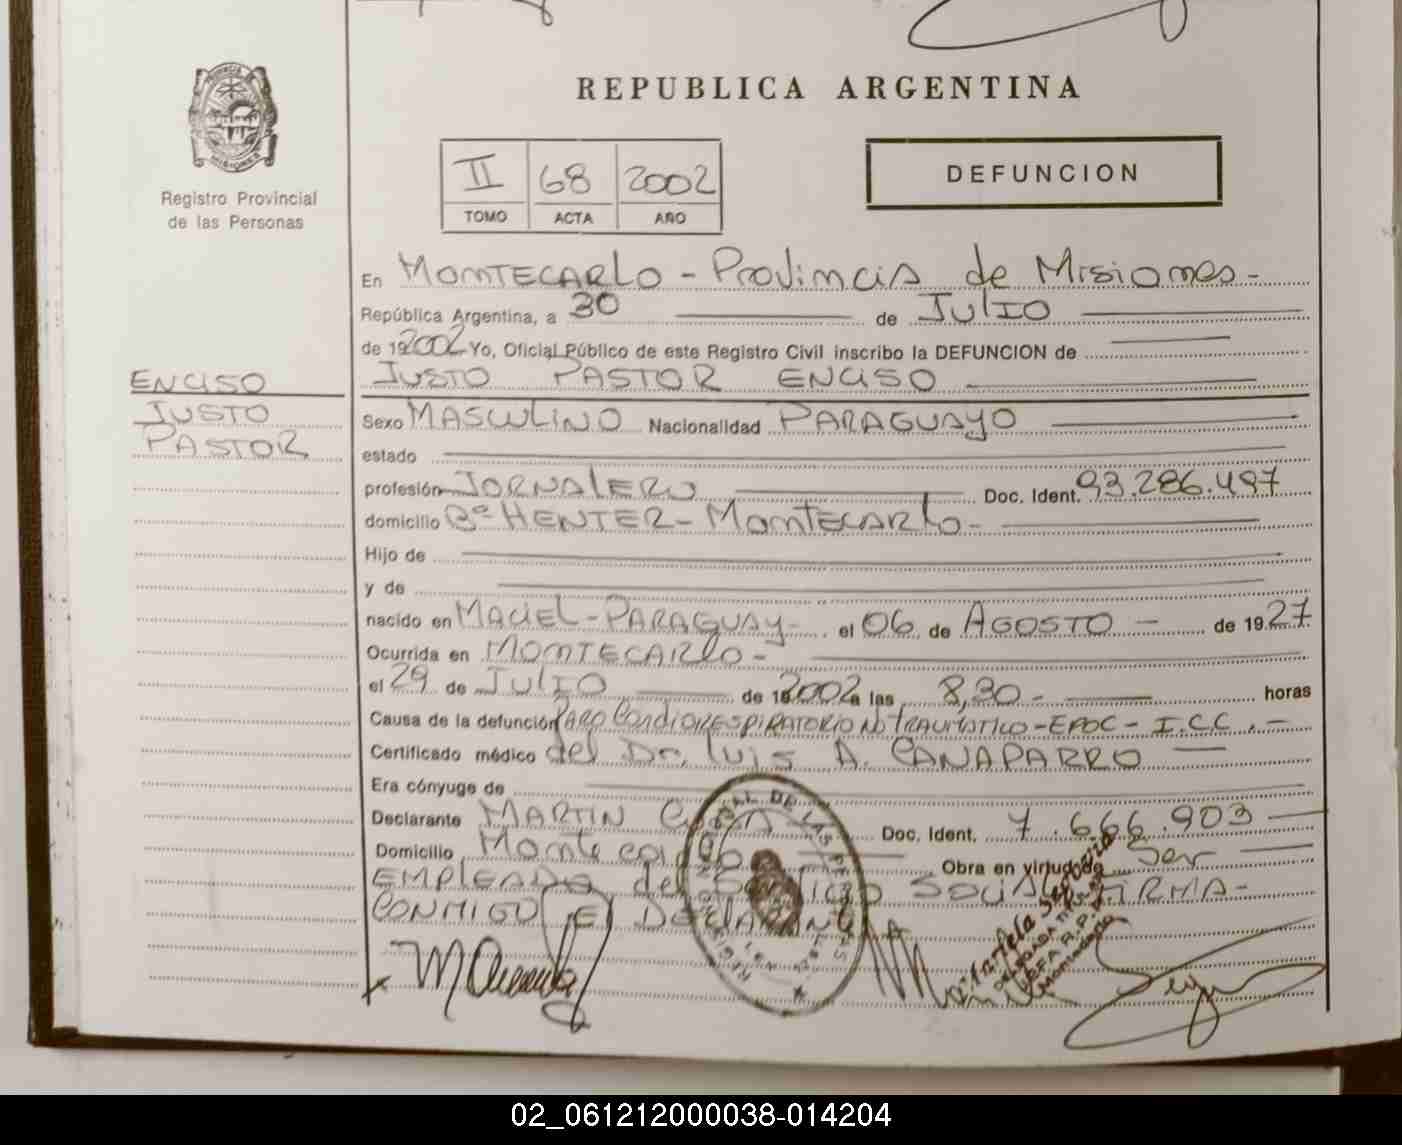 REPUBLICA ARGENTINA
PROVINCIA DE
MISIONES
Registro Provincial
de las Personas
II 68 2002
TOMO ACTA AÑO
DEFUNCION
En MONTECARLO - Provincia de Misiones -
República Argentina, a 30 de JULIO
de 192002 Yo, Oficial Público de este Registro Civil inscribo la DEFUNCION de
JUSTO PASTOR ENCISO
ENCISO
JUSTO
PASTOR
Sexo MASCULINO Nacionalidad PARAGUAYO
estado
profesión JORNALERO Doc. Ident. 93.286.497
domicilio Bº HENTER - Montecarlo -
Hijo de
y de
nacido en MACIEL - PARAGUAY - el 06 de AGOSTO - de 1927
Ocurrida en MONTECARLO -
el 29 de JULIO de 2002 a las 8,30 - horas
Causa de la defunción PARO CARDIORESPIRATORIO NO TRAUMATICO - EPOC - I.C.C. -
Certificado médico del Dr. Luis A. CANAPARRO
Era cónyuge de
Declarante MARTIN Doc. Ident. 7.666.903
Domicilio Montecarlo Obra en virtud de Ser
EMPLEADO del Servicio SOCIAL FIRMA -
CONMIGO EL DECLARANTE
02_061212000038-014204